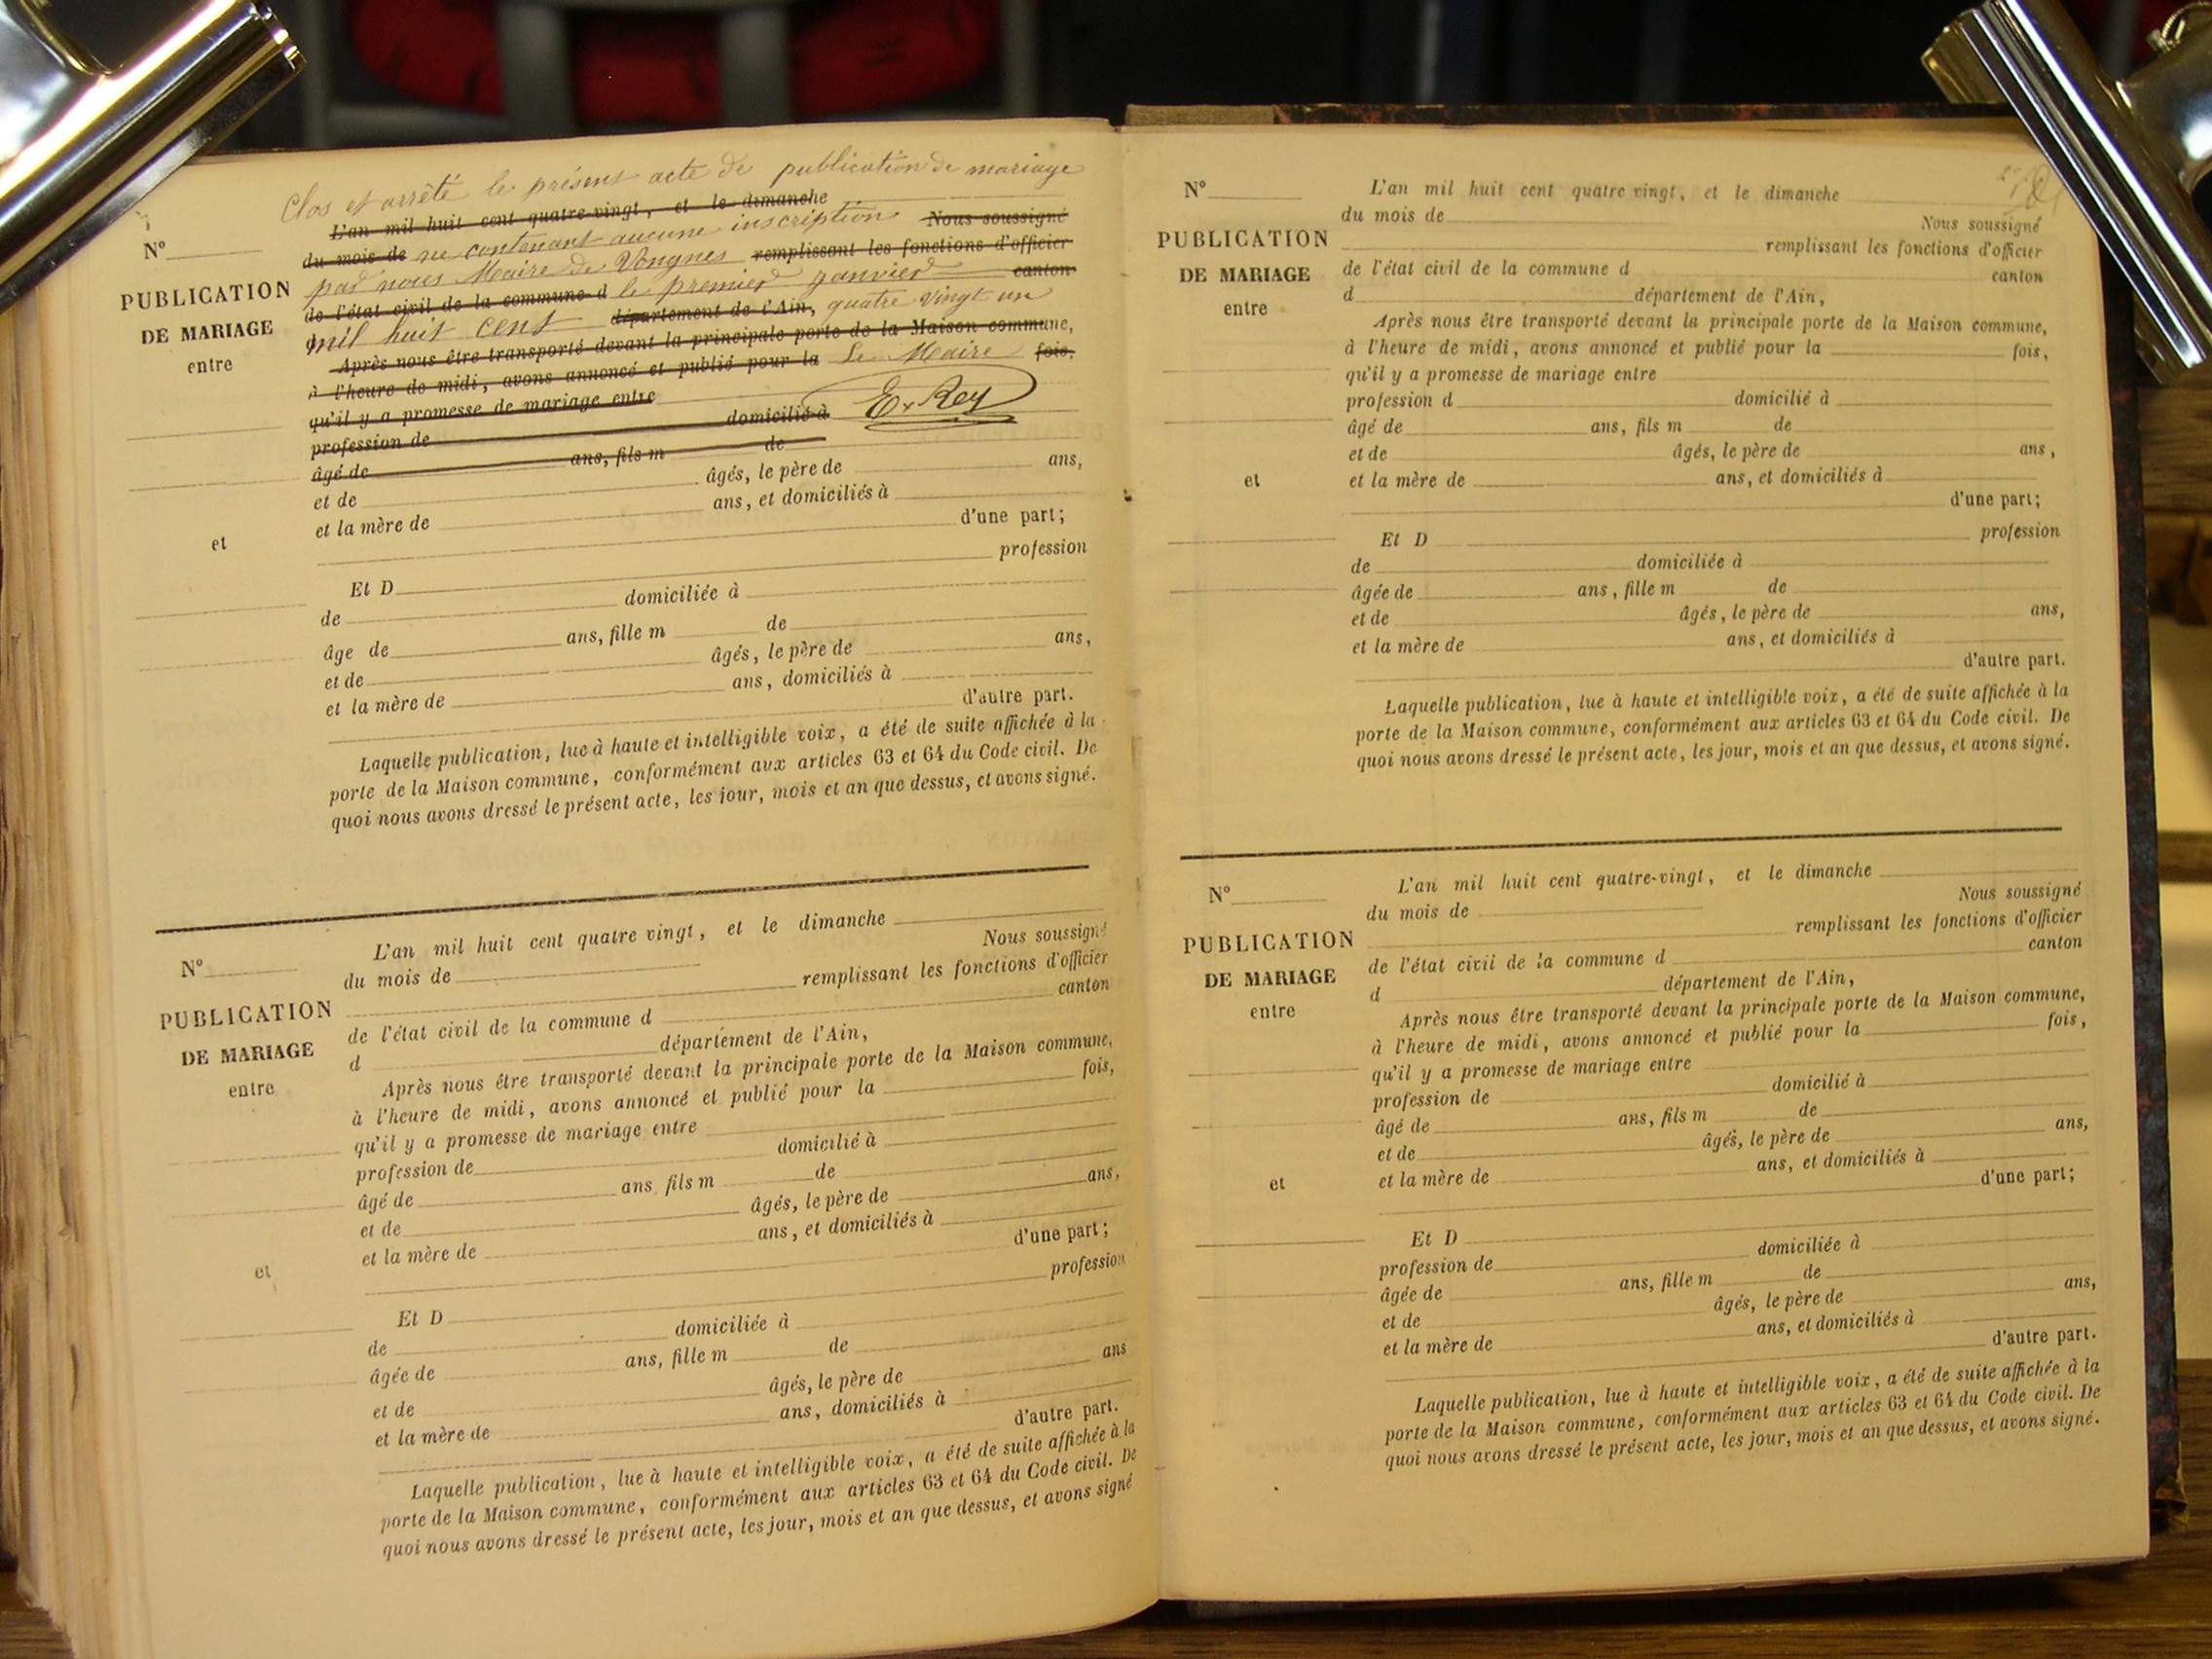 Clos et arrêté le présent acte de publication de mariage
L'an mil huit cent quatre-vingt, et le dimanche
N°
du mois de ne contenant aucune inscription Nous soussigné
par nous Maire de Vongnes remplissant les fonctions d'officier
PUBLICATION
DE MARIAGE
entre
de l'état civil de la commune d le premier janvier canton
mil huit cent département de l'Ain, quatre vingt un
Après nous être transporté devant la principale porte de la Maison commune,
à l'heure de midi, avons annoncé et publié pour la Le Maire fois,
qu'il y a promesse de mariage entre
profession de domicilié à E. Rey
âgé de ans, fils m de
et de âgés, le père de ans,
et la mère de ans, et domiciliés à
d'une part;
et
Et D profession
de domiciliée à
âge de ans, fille m de
et de âgés, le père de ans,
et la mère de ans, domiciliés à
d'autre part.
Laquelle publication, lue à haute et intelligible voix, a été de suite affichée à la
porte de la Maison commune, conformément aux articles 63 et 64 du Code civil. De
quoi nous avons dressé le présent acte, les jour, mois et an que dessus, et avons signé.
N°
PUBLICATION
DE MARIAGE
entre
et
L'an mil huit cent quatre vingt, et le dimanche
du mois de Nous soussigné
remplissant les fonctions d'officier
de l'état civil de la commune d canton
d département de l'Ain,
Après nous être transporté devant la principale porte de la Maison commune,
à l'heure de midi, avons annoncé et publié pour la fois,
qu'il y a promesse de mariage entre
profession de domicilié à
âgé de ans, fils m de
et de âgés, le père de ans,
et la mère de ans, et domiciliés à
d'une part;
Et D profession
de domiciliée à
âgée de ans, fille m de
et de âgés, le père de ans
et la mère de ans, domiciliés à
d'autre part.
Laquelle publication, lue à haute et intelligible voix, a été de suite affichée à la
porte de la Maison commune, conformément aux articles 63 et 64 du Code civil. De
quoi nous avons dressé le présent acte, les jour, mois et an que dessus, et avons signé
N°
PUBLICATION
DE MARIAGE
entre
et
L'an mil huit cent quatre vingt, et le dimanche
du mois de Nous soussigné
remplissant les fonctions d'officier
de l'état civil de la commune d canton
d département de l'Ain,
Après nous être transporté devant la principale porte de la Maison commune,
à l'heure de midi, avons annoncé et publié pour la fois,
qu'il y a promesse de mariage entre
profession d domicilié à
âgé de ans, fils m de
et de âgés, le père de ans,
et la mère de ans, et domiciliés à
d'une part;
Et D profession
de domiciliée à
âgée de ans, fille m de
et de âgés, le père de ans,
et la mère de ans, et domiciliés à
d'autre part.
Laquelle publication, lue à haute et intelligible voix, a été de suite affichée à la
porte de la Maison commune, conformément aux articles 63 et 64 du Code civil. De
quoi nous avons dressé le présent acte, les jour, mois et an que dessus, et avons signé.
N°
PUBLICATION
DE MARIAGE
entre
et
L'an mil huit cent quatre-vingt, et le dimanche
du mois de Nous soussigné
remplissant les fonctions d'officier
de l'état civil de la commune d canton
d département de l'Ain,
Après nous être transporté devant la principale porte de la Maison commune,
à l'heure de midi, avons annoncé et publié pour la fois,
qu'il y a promesse de mariage entre
profession de domicilié à
âgé de ans, fils m de
et de âgés, le père de ans,
et la mère de ans, et domiciliés à
d'une part;
Et D
profession de domiciliée à
âgée de ans, fille m de
et de âgés, le père de ans,
et la mère de ans, et domiciliés à
d'autre part.
Laquelle publication, lue à haute et intelligible voix, a été de suite affichée à la
porte de la Maison commune, conformément aux articles 63 et 64 du Code civil. De
quoi nous avons dressé le présent acte, les jour, mois et an que dessus, et avons signé.